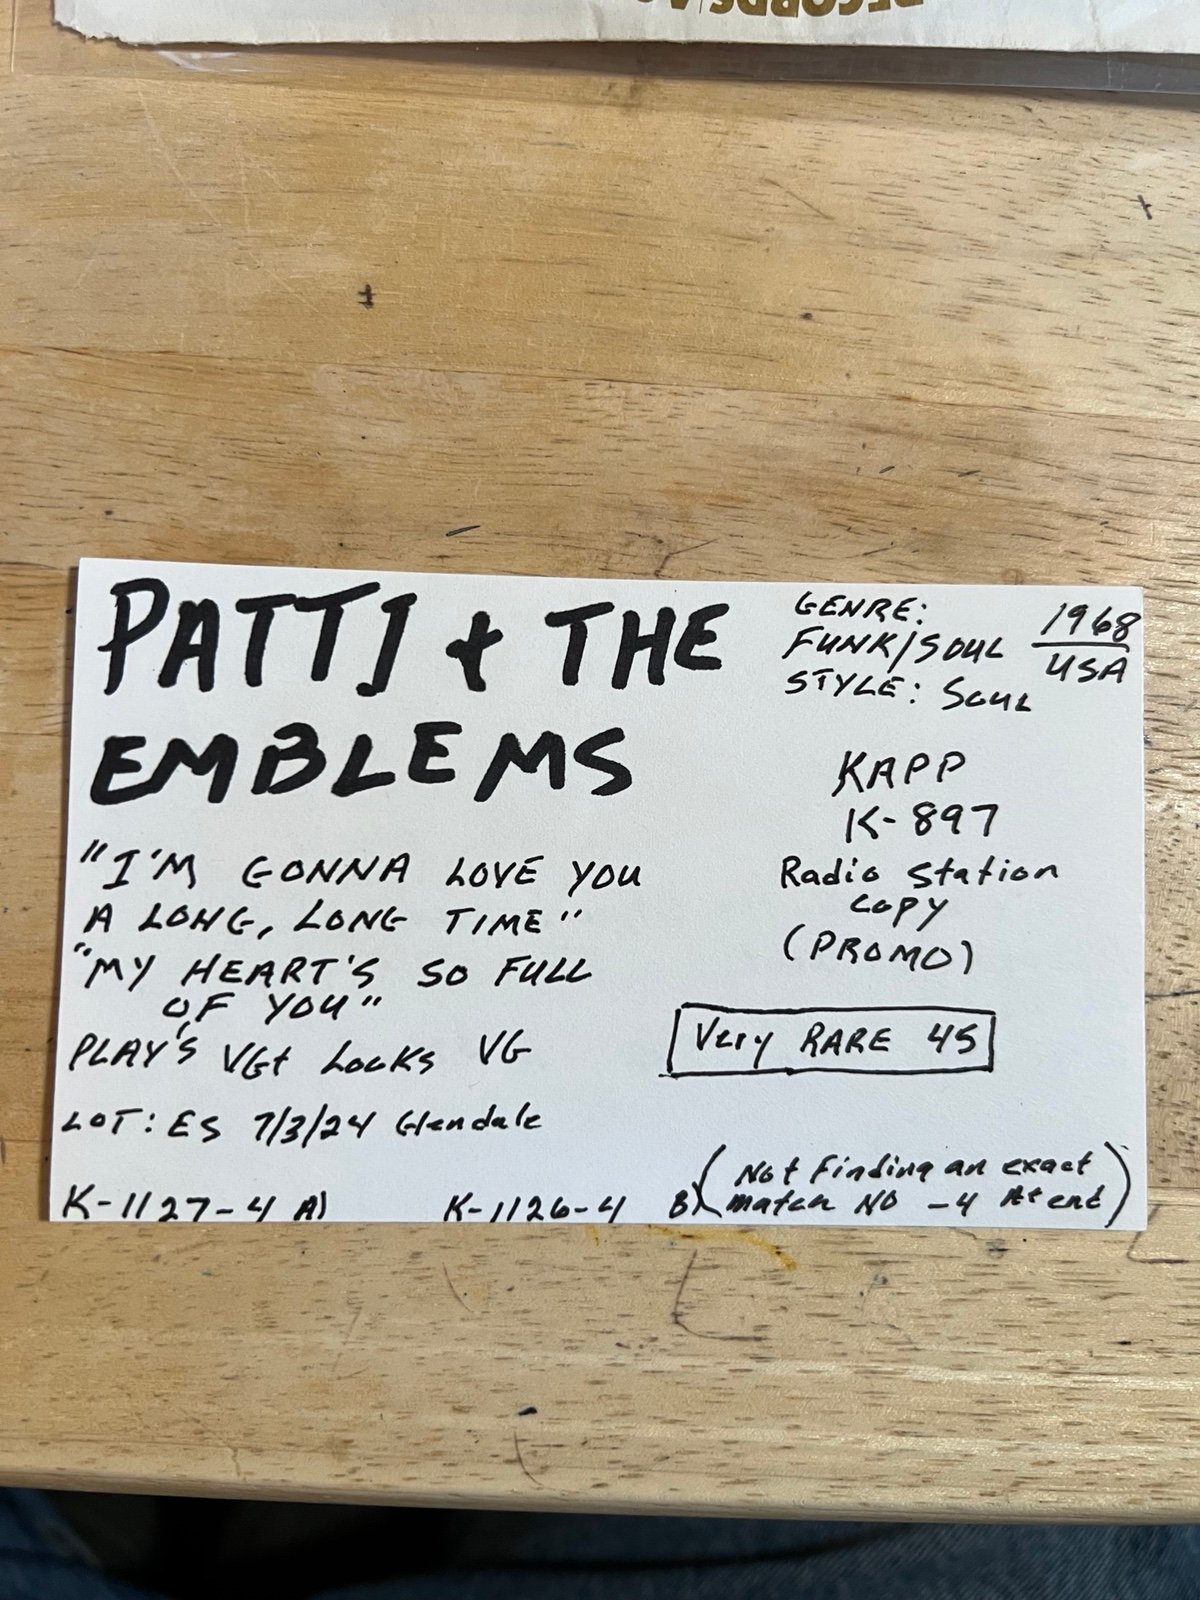 RECORDS/A
PATTI & THE
EMBLEMS
GENRE:
FUNK/SOUL
STYLE: SOUL
1968
USA
"I'M GONNA LOVE YOU
A LONG, LONG TIME"
"MY HEART'S SO FULL
OF YOU"
PLAY'S VG+ Looks VG
LOT: ES 7/3/24 Glendale
K-1127-4 A)
KAPP
K-897
Radio Station
Copy
(PROMO)
Very RARE 45
K-1126-4 B)
(Not Finding an exact
match NO -4 At end)